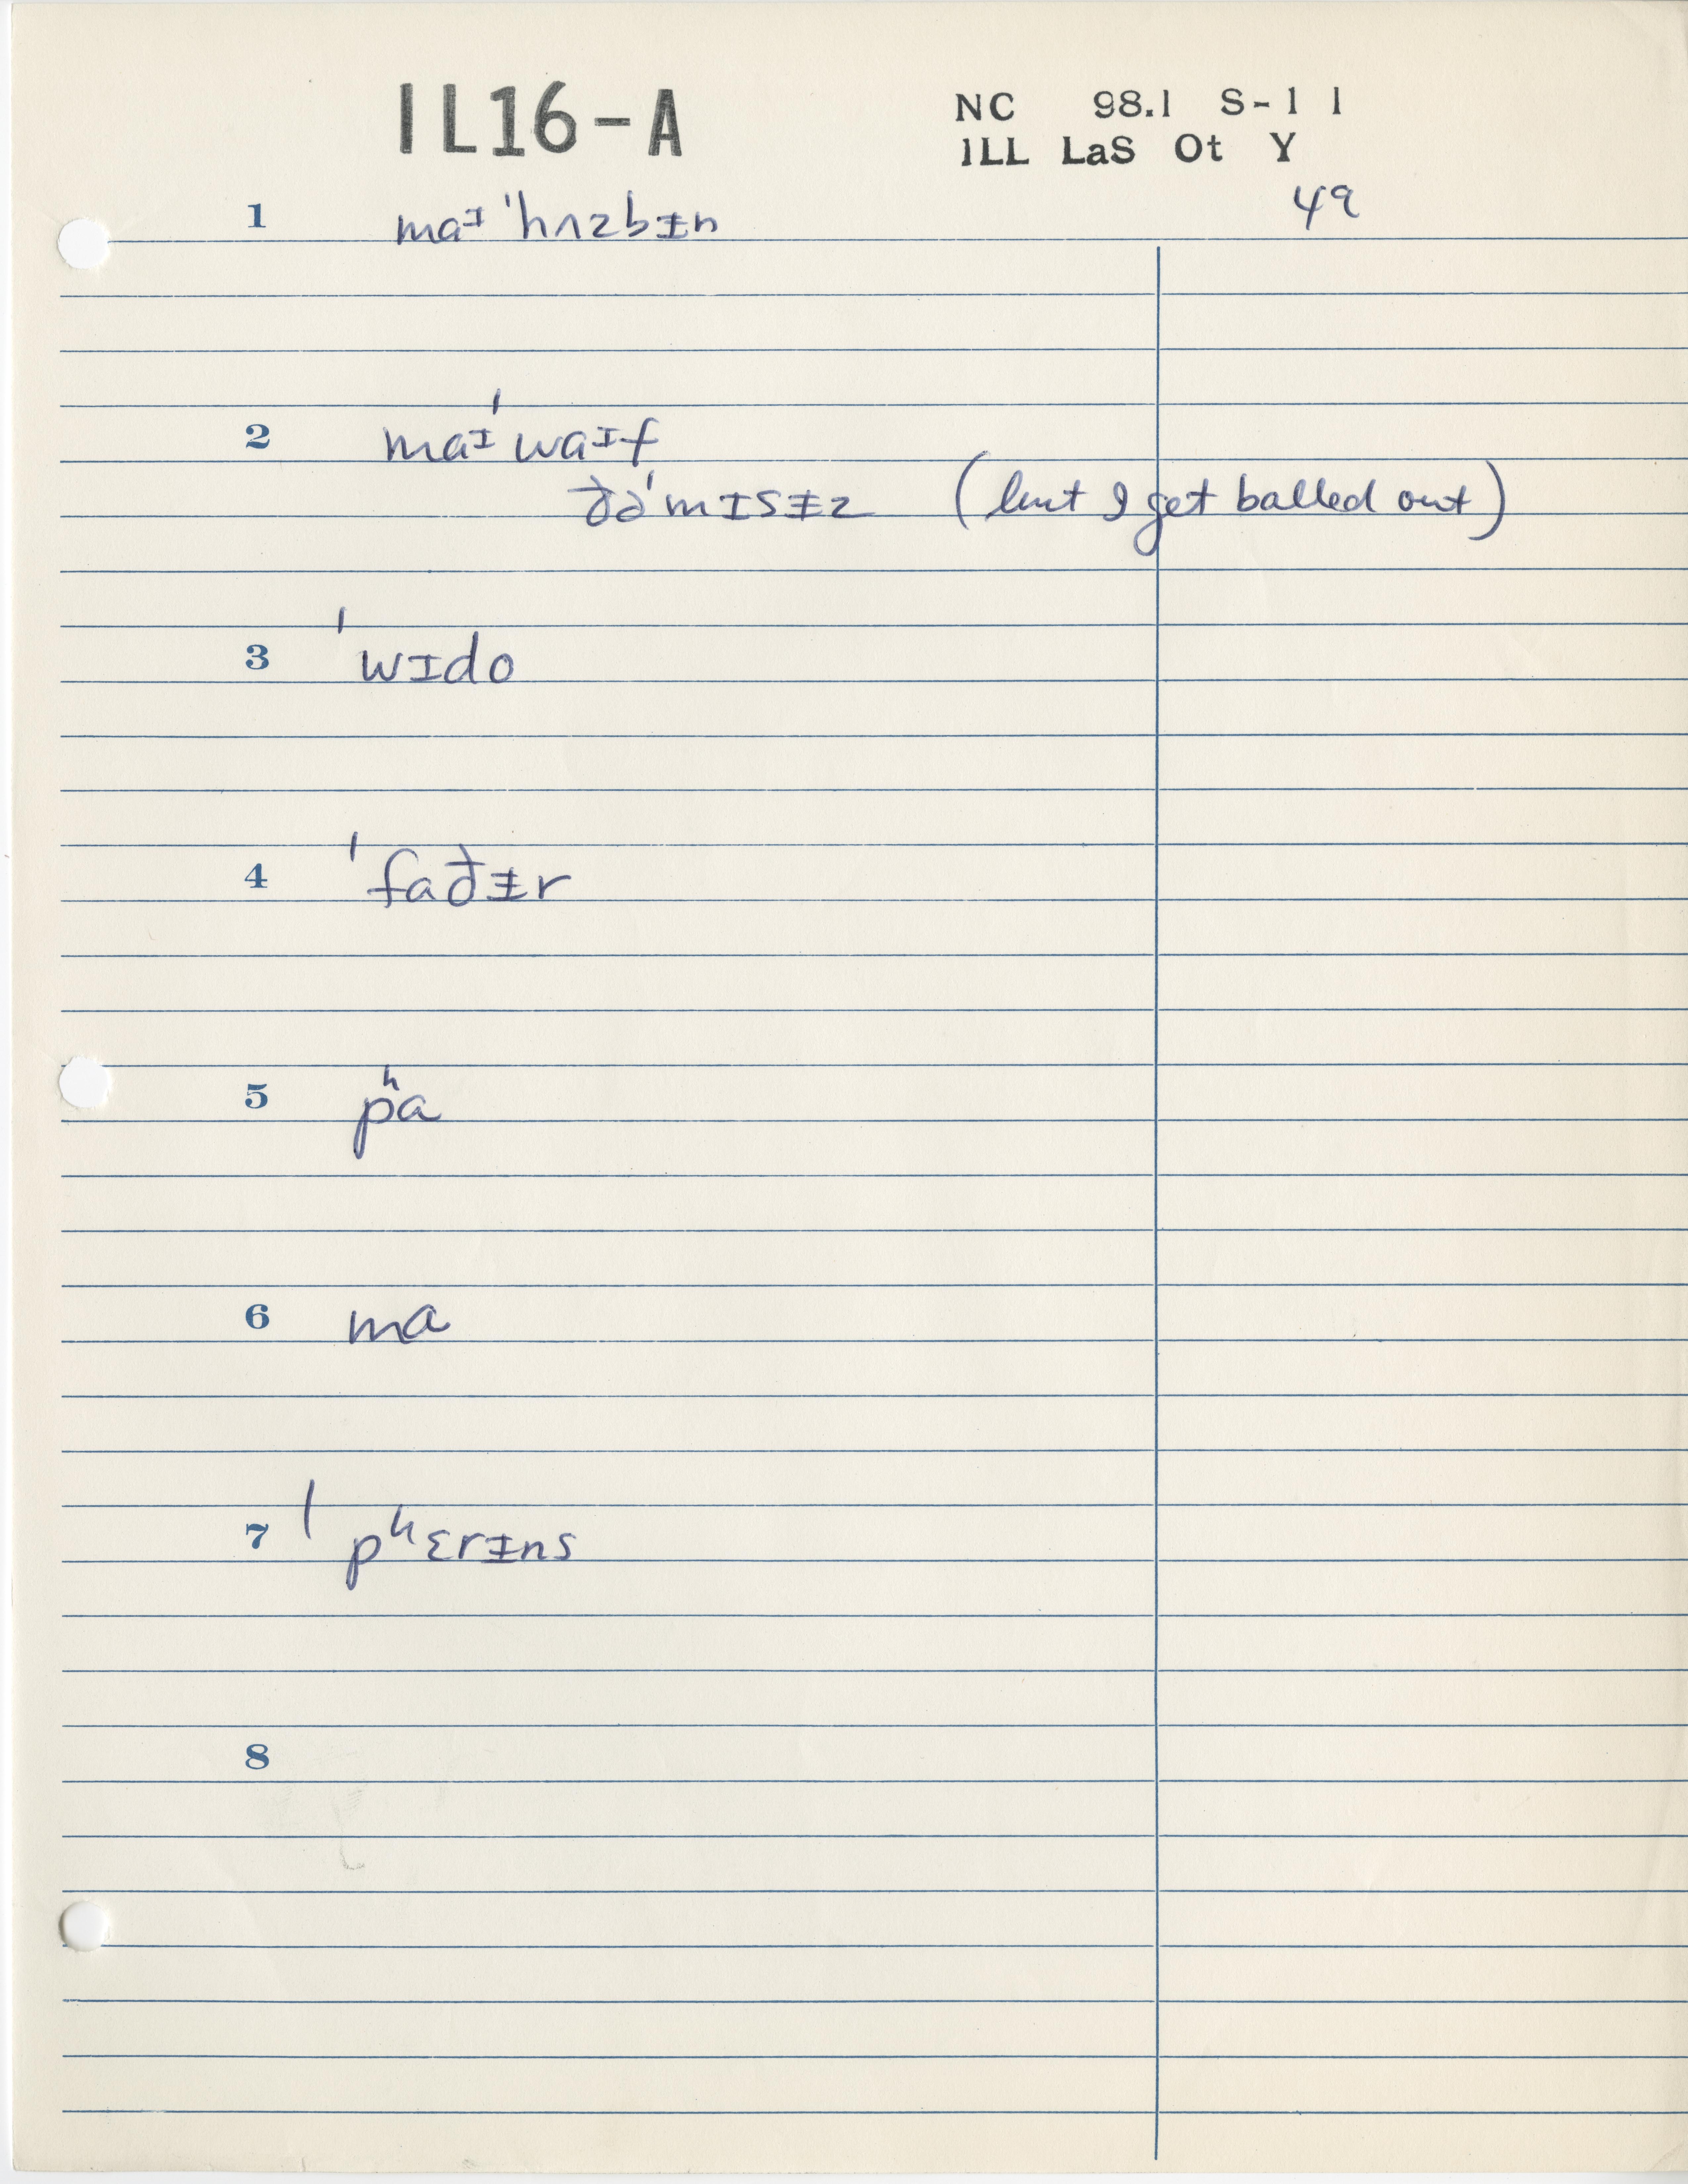 IL16-A
NC 98.1 S-1 1
ILL LaS Ot Y
49
1 maɪ 'hʌzbᵻn
2 maɪ 'waɪf
ðə 'mɪsᵻz (but I get balled out)
3 'wɪdo
4 'faðᵻr
5 pʰa
6 ma
7 'pʰɛrᵻns
8